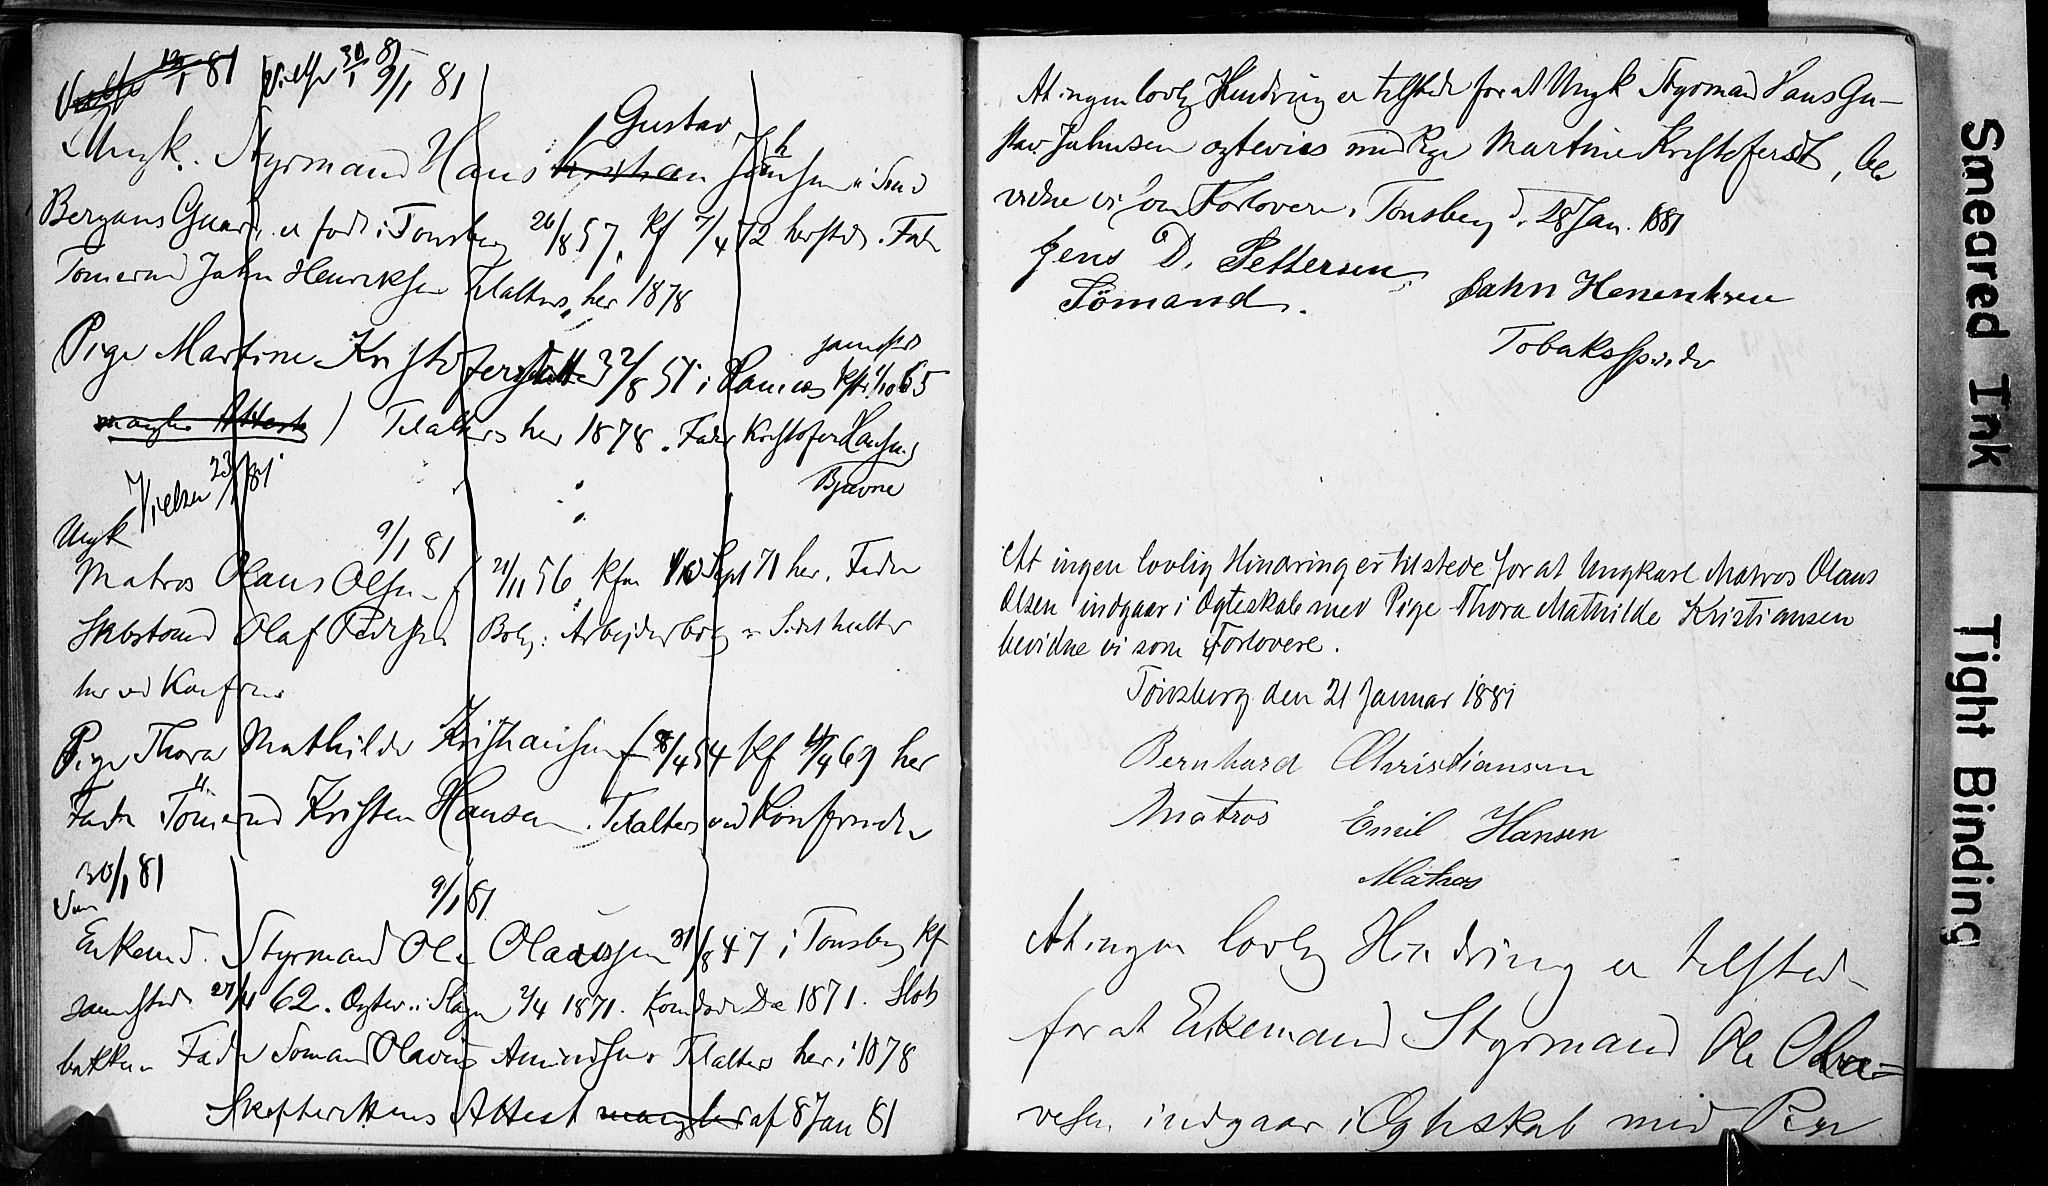 Vielse 12/1 81 Vielse 30/1 81 9/1 81
Gustav
Ungk. Styrmand Hans Kristian Jahnsen i Smd
Bergans Gaard, er født i Tønsberg 26/8 57, Kf 7/4 72 hersteds. Fader
Tømermd Jahn Henriksen Tilalters her 1878
Pige Martine Kristofersdatter 32/8 51 i Ramnes Kft. 1/10 65
samsteds
mangler Attest) Tilalters her 1878. Fader Kristofer Hansen,
Bjavne
Vielsen 23/1 81
Ungk 9/1 81
Matros Olaus Olsen f 21/11 56 Kfm 1/10 Sept 71 her. Fader
Skibstømd Olaf Pedersen Bolig: Arbejderbolig. Sidst tilalters
her ved Konfirm
Pige Thora Mathilde Kristiansen f 8/4 54 Kf 4/4 69 her
Fader Tømermd Kristen Hansen. Tilalters ved Konfirmation
30/1 81
9/1 81
Enkemd. Styrmand Ole Olavesen 31/8 47 i Tønsberg Kf
samsteds 27/4 62. Ægtev. i Slagen 2/4 1871. Kone døde De 1871. Slots
bakken Fader Sømand Olavus Amundsen Tilalters her i 1878
Skifterettens Attest mangler af 8 Jan 81
At ingen lovlig Hindring er tilstede for at Ungk Styrmand Hans Gu-
stav Jahnsen ægtevies med Pige Martine Kristofersdt, be
vidne vi som Forlovere, Tønsberg d. 28 Jan. 1881
Jens D. Pettersen, Jahn Henriksen
Sömand. Tobaksspinder
At ingen lovlig Hindring er tilstede for at Ungkarl Matros Olaus
Olsen indgaar i Ægteskab med Pige Thora Mathilde Kristiansen
bevidne vi som Forlovere.
Tønsberg den 21 Januar 1881
Bernhard Christiansen
Matros Emil Hansen
Matros
At ingen lovlig Hindring er tilstede
for at Enkemand Styrmand Ole Ola=
vesen indgaar i Ægteskab med Pige
Smeared Ink
Tight Binding